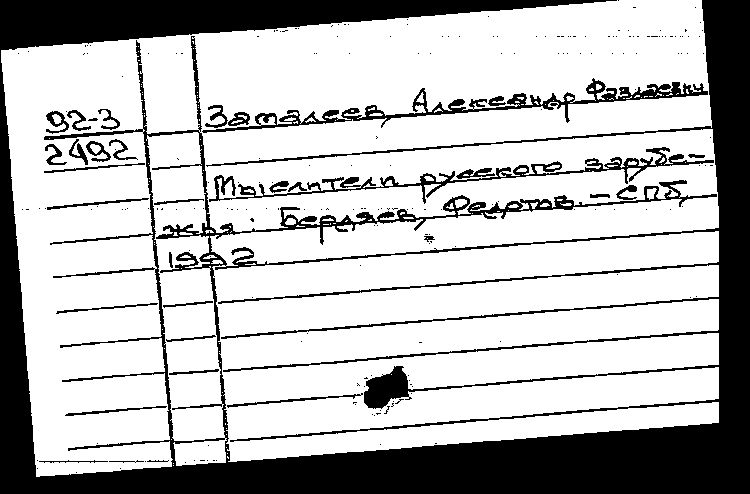 92-3
2492
Замалеев, Александр Фазлаевич
Мыслители русского зарубе-
жья: Бердяев, Федотов. - СПб,
1992